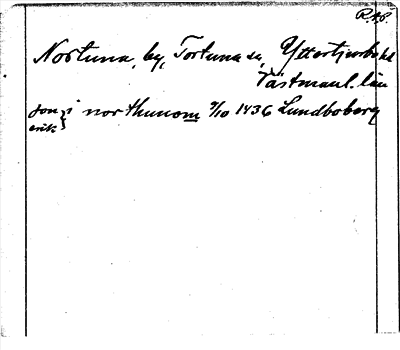 R. 48.
Nortuna, by, Tortuna sn, Yttertjurbo hd
Västmanl. län
jon } i northunom 9/10 1436 Lundboberg
erik